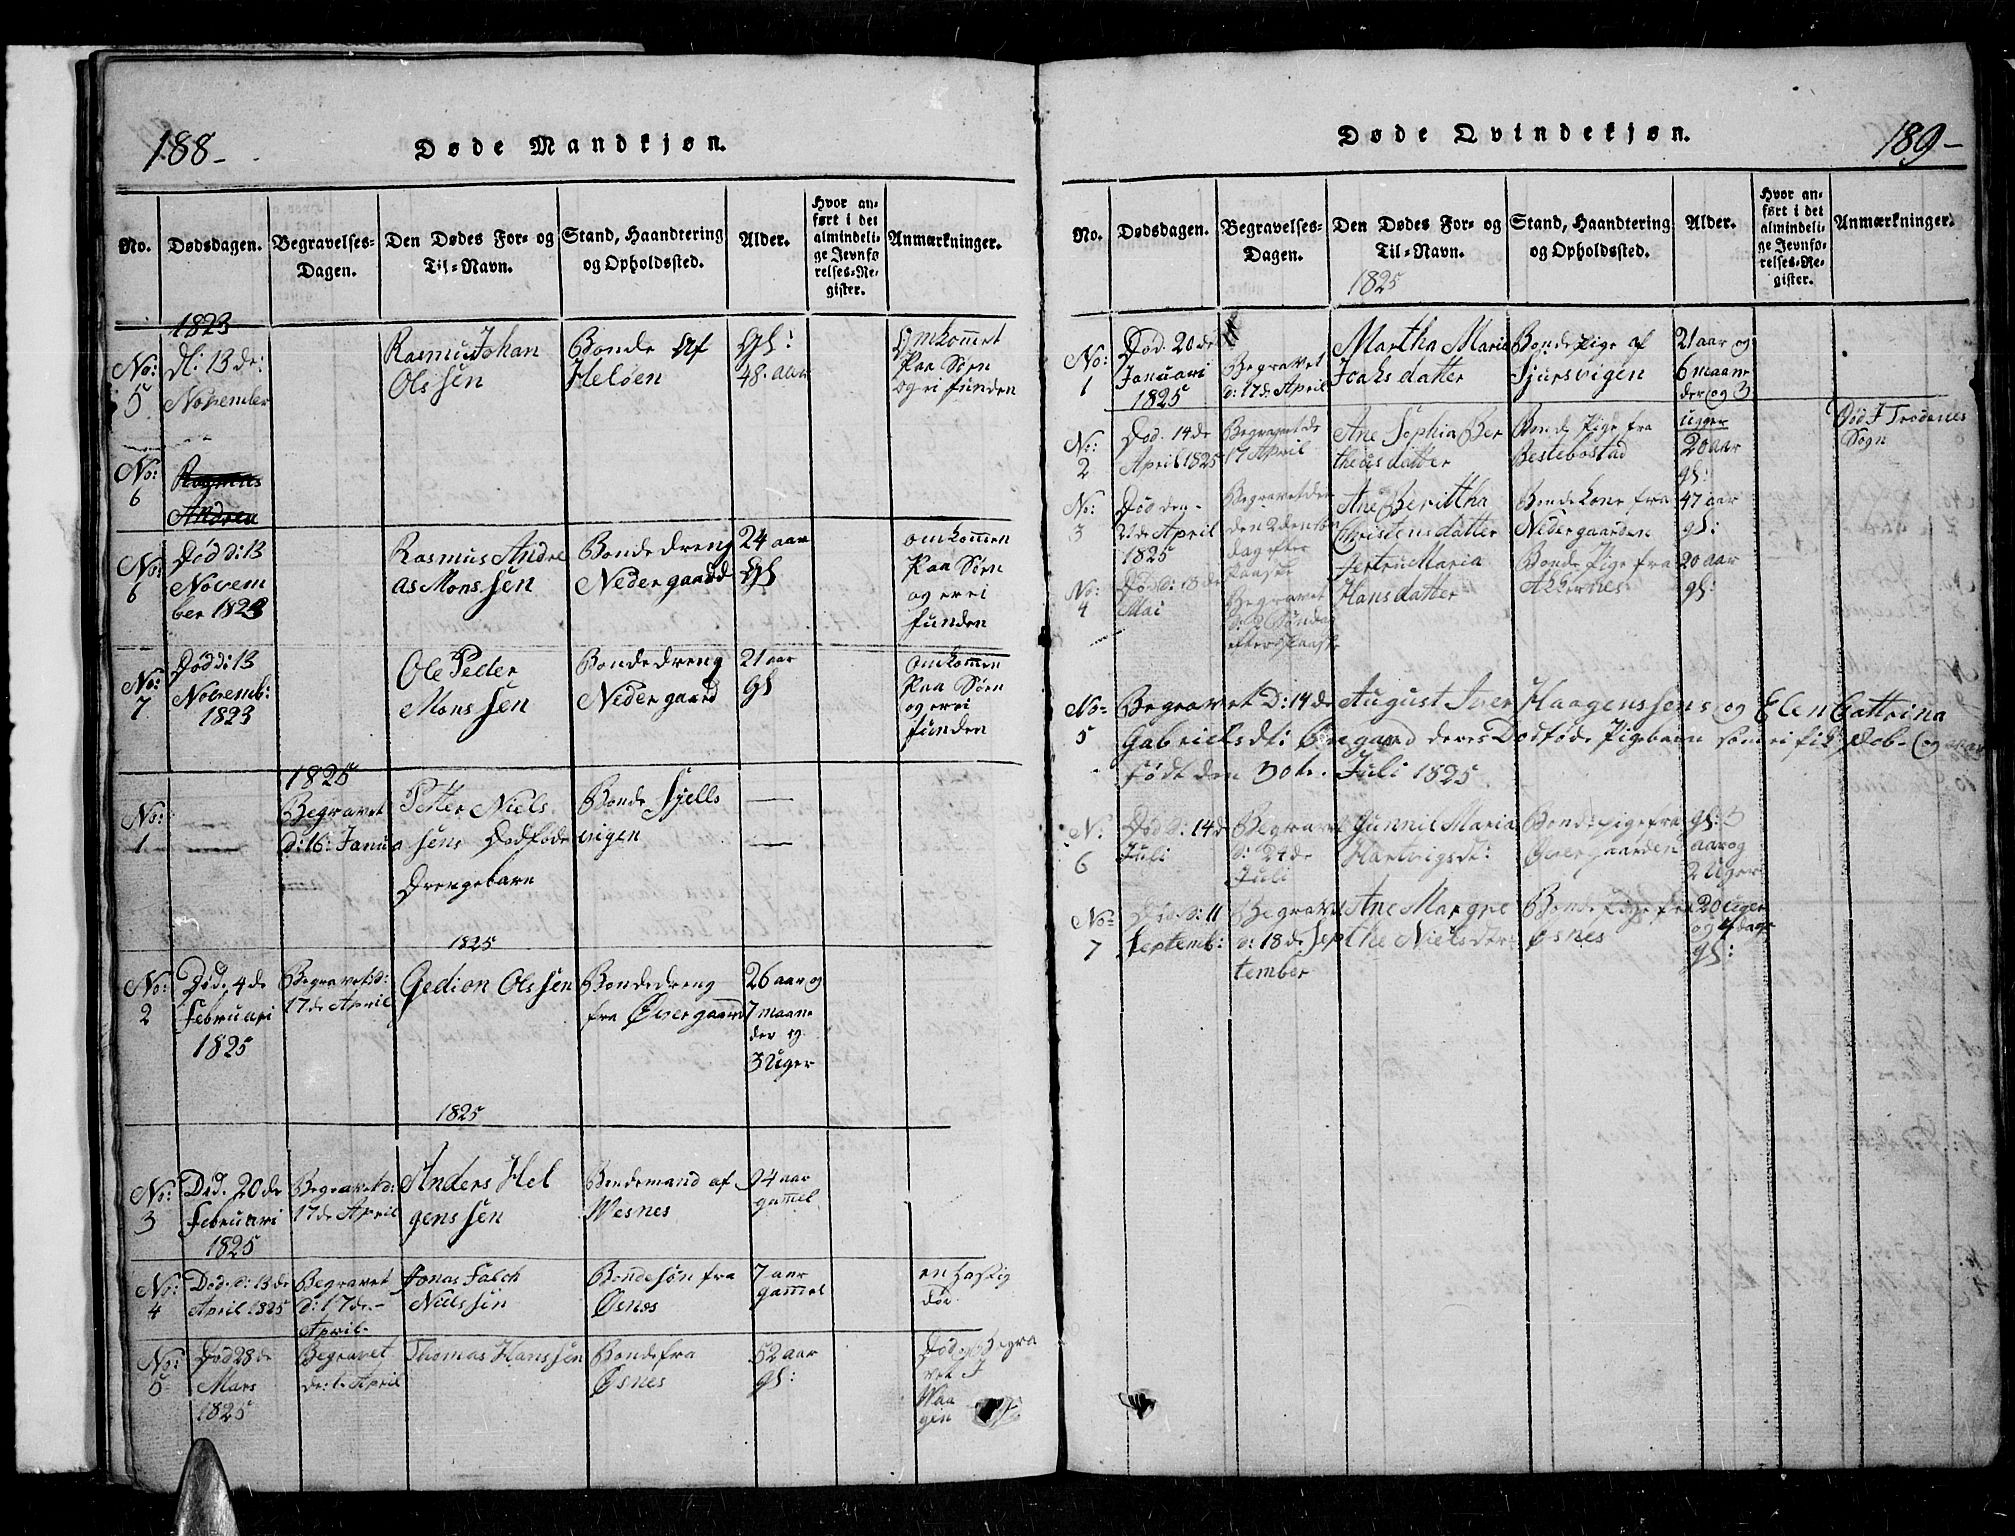 188-
Døde Mandkjøn.
No.
Dødsdagen.
Begravelses-
Dagen.
Den Dødes For- og
Til-Navn.
Stand, Haandtering
og Opholdssted.
Alder.
Hvor an-
ført i det
almindeli-
ge Jevnfø-
relses-Re-
gister.
Anmærkninger.
1823
No:
5
Dl: 13 de:
November
Rasmus Johan
Olssen
Bonde Af
Heløen
Gl:
48. aar
Omkommet
Paa Søen
og ei funden
No:
6
Rasmus
Andrea
No:
6
Død d: 13
Novem
ber 1823
Rasmus Andre
as Monssen
Bondedreng
Nedergaard
24 aar
Gl
omkommen
Paa Søen
og er ei
funden
No:
7
Død d: 13
Novemb:
1823
Ole Peder
Monssen
Bondedreng
Nedergaard
21 aar
Gl
omkommen
Paa Søen
og er ei
funden
1825
No:
1
Begravet
d: 16: Janua
Petter Niels
sens Dødføde
Drengebarn
Bonde Fjells
vigen
1825
No:
2
Død. 4 de
Februari
1825
Begravet d:
17 de April
Gedion Olssen
Bondedreng
fra Øvergaard
26 aar og
7 maane
der og
3 Uger
1825
No:
3
Død. 20 de
Februari
1825
Begravet d:
17 de April
Anders Hel
genssen
Bondemand af
Wesnes
94 aar
gammel
No:
4
Død. d: 13 de
April 1825
Begravet
d: 17 de-
April-
Jonas Falch
Nielssen
Bondesøn fra
Øsnes
7 aar
gammel
en hastig
Død
No:
5
Død 28 de
Mars
1825
Begravet
de: 1. April
Thomas Hanssen
Bonde fra
Øsnes
52 aar
gl:
Død og Begra
vet I
Waa
gen
Døde Qvindekjøn.
189-
No.
Dødsdagen.
Begravelses-
Dagen.
Den Dødes For- og
Til-Navn.
1825
Stand, Haandtering
og Opholdssted.
Alder.
Hvor an-
ført i det
almindeli-
ge Jevnfø-
relses-Re-
gister.
Anmærkninger.
No:
1
Død. 20 de
Januari
1825
Begravet
d: 17 de April
Martha Maria
Isaksdatter
Bondepige af
Sjursvigen
21 aar og
6 maane
der og 3
Uger
No:
2
Død. 14 de
April 1825
Begravet de
17 April
Ane Sophia Ber
theusdatter
Bonde Pige fra
Bestebostad
20 aar
gl:
Død I Trodenes
Sogn
No:
3
Død den-
21 de April
1825
Begravet den
den 2den
dag efter
Paaske
Ane Berittha
Christensdatter
Bonde Kone fra
Nedergaarden
47 aar
gl:
No:
4
Død d: 13 de
Mai
Begravet
d: 2 Søndag
efter Paaske
Jertru Maria
Hansdatter
Bonde Pige fra
Akkernes
20 aar
gl:
No-
5
Begravet D: 14 de August Iver Haagenssens og Elen Cattrina
Gabrielsdt: Øvegard deres Dødføde Pigebarn som ei fik Dob- (og var
født den 30 te. Juli 1825
N:
6
Død d: 14 de
Juli
Begravet
d: 24 de
Juli
Gunnil Maria
Hartvigsdt:
Bond: Pige fra
Øvergaarden
gl: 3
aar og
2 Uger
No-
7
Død d: 11
Septemb:
Begravet
d: 18 de Sep
tember
Ane Margre
the Nielsdtr:
Bonde Pige fra
Øsnes
20 Uger
og 4 dage
gl: